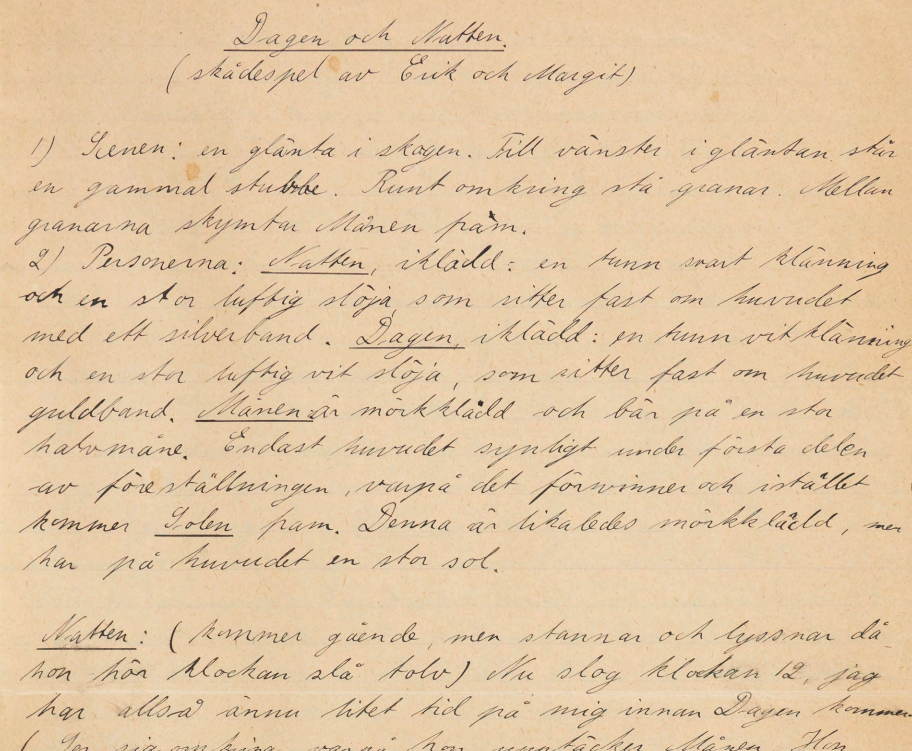 Dagen och Natten.
(skådespel av Erik och Margit)
1) Scenen: en glänta i skogen. Till vänster i gläntan står
en gammal stubbe. Runt omkring stå granar. Mellan
granarna skymtar Månen fram.
2) Personerna: Natten, iklädd: en tunn svart klänning
och en stor luftig slöja som sitter fast om huvudet
med ett silverband. Dagen, iklädd: en tunn vit klänning
och en stor luftig vit slöja, som sitter fast om huvudet
guldband. Månen är mörkklädd och bär på en stor
halvmåne. Endast huvudet synligt under första delen
av föreställningen, varpå det förvinner och istället
kommer Solen fram. Denna är likaledes mörkklädd, men
har på huvudet en stor sol.
Natten: (kommer gående, men stannar och lyssnar då
hon hör klockan slå tolv) Nu slog klockan 12, jag
har alltså ännu litet tid på mig innan Dagen kommer
(Ser sig omkring varpå hon upptäcker Månen. Hon